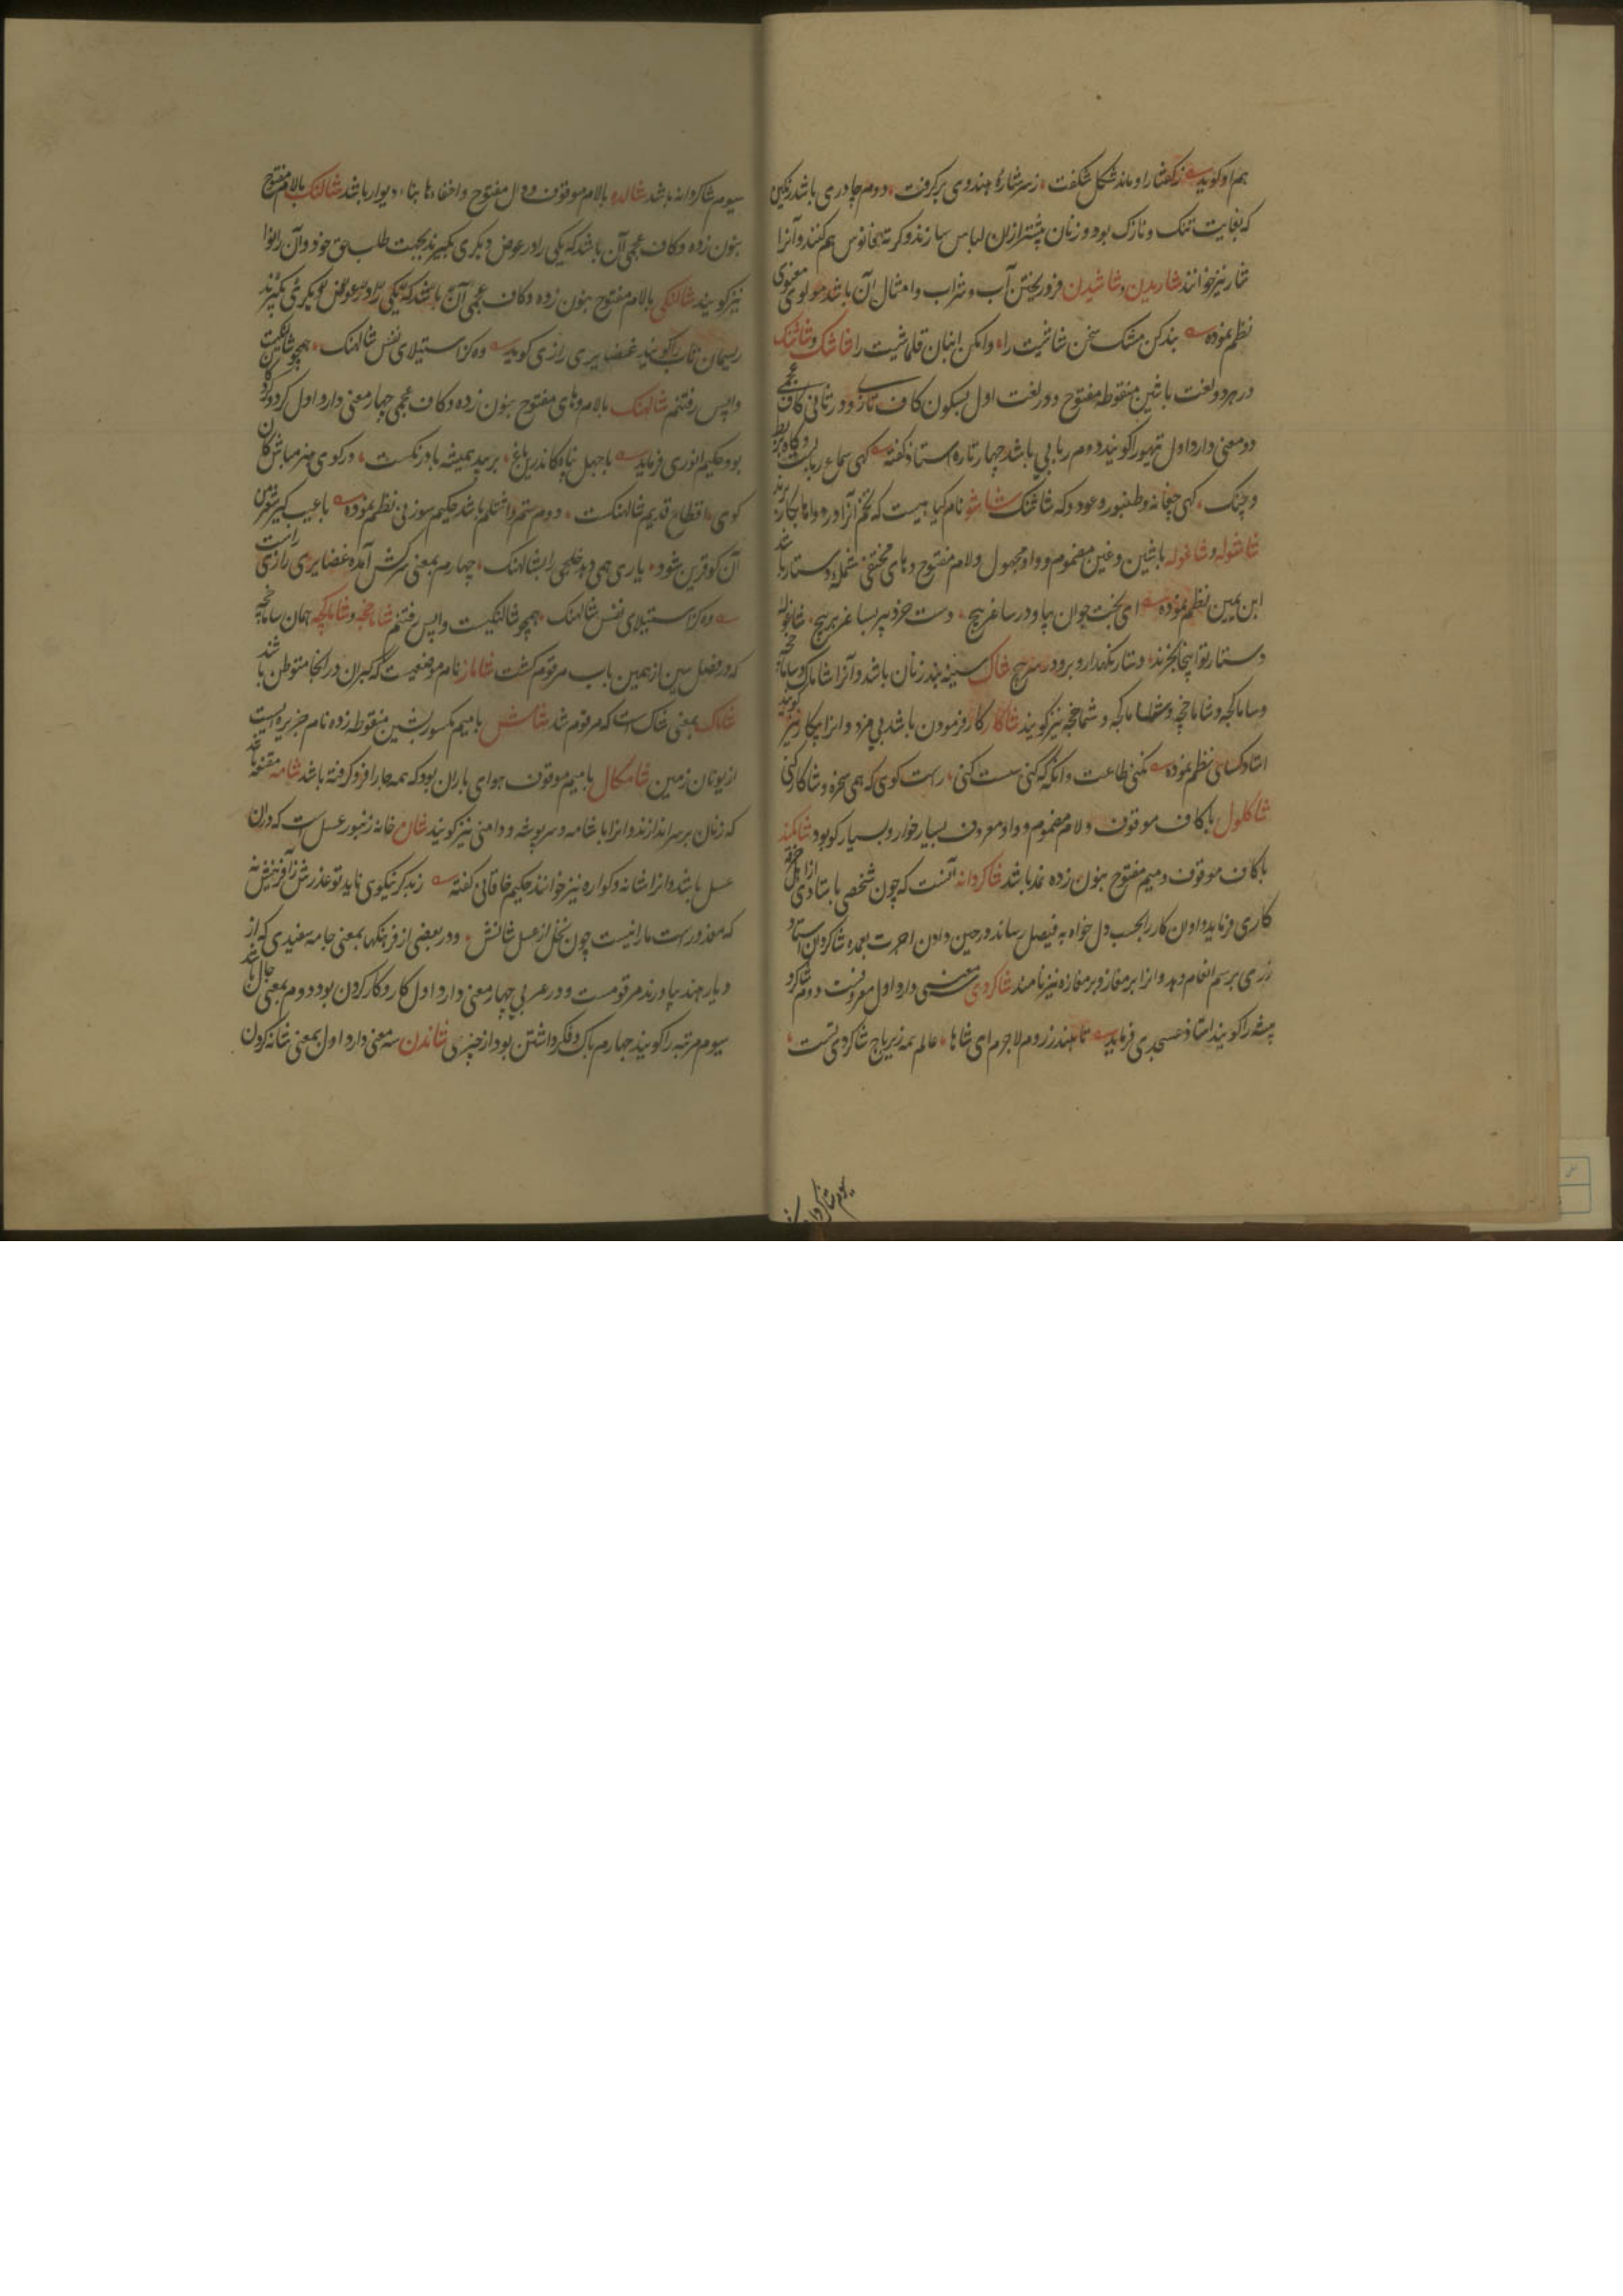 هم او کوید زکفتار او ماند شکل شکفت زسر شاره هندوی بر کرفت دوم چادری باشد رنکین
که بغایت تنک و نازک بود و زنان پیشتر ازان لباس سازند و کرته فانوس هم کنند و آنرا
شار نیز خوانند شاریدن و شاشیدن فرو ریختن آب و شراب و امثال آن باشد مولوی معنوی
نظم نموده بند کن مشک سخن شاشیت را وا مکن انبان قلماشیت را شاشک و شاشنک
در هر دو لغت با شین منقوطه مفتوح و در لغت اول بسکون کاف تازی و در ثانی کاف عجمی
دو معنی دارد اول تیهو را کویند دوم ربابی باشد چهار تاره استاد کفته کهی سماع
و چنک کهی چغانه و طنبور و عود و که شاشنک شاشو نام کیاهیست که تخم آنرا در دواها بکار برند
شاشوله و شاغوله با شین و غین مضموم و واو مجهول و لام مفتوح و های مختفی شمله دستار باشد
ابن یمین نظم نموده ای بخت جوان بیا و در ساغر پیچ دست خرد پیر بسا غر بر پیچ شاغوله
دستار تو اینجا نخرند دستار نکهدار و برو و در سر پیچ شاک سینه بند زنان باشد و آنرا شاماک و ساماخچه
و ساماکچه و شاماخچه و شاماکچه و شماخچه نیز کویند شاکار کار فرمودن باشد بی مزد و انرا بیکار نیز کویند
استاد کسایی نظم نموده نکنی طاعت و انکه که کنی سست کنی راست کوی که همی سخره و شاکار کنی
شاکلول با کاف موقوف و لام مضموم و واو معروف بسیار خوار و بسیار کو بود شاکمند
با کاف موقوف و میم مفتوح بنون زده نمد باشد شاکردانه آنست که چون شخصی باستادی
کاری فرماید و او ان کار را بحسب دل خواه به فیصل رساند در حین دادن اجرت بعمده شاکرد ان استاد
زری برسم انعام دهد و انرا برمغاز و برمغازه نیز نامند شاکردی سه معنی دارد اول معروفست دوم شاکرد
پیشه را کویند استاد عسجدی فرماید تا هند ز روم لاجرم ای شاها عالم همه زیر باج شاکردی تست
سیوم شاکردانه
سیوم شاکردانه باشد شالده بالام موقوف و دال مفتوح و اخفاء ها بناء دیوار باشد شالنک بالام مفتوح
بنون زده و کاف عجمی آن باشد که یکی را در عوض دیکری بکیرند بجهت طلب حق خود و آن را نوا
نیز کویند شالنکی بالام مفتوح بنون زده و کاف عجمی آن باشد که یکی را در عوض دیکری بکیرند
ریسمان تاب را کویند غضایری رازی کوید وه کز استیلای نفس شالهنک همچو شالنکیست
واپس رفتنم شالهنک بالام و های مفتوح بنون زده و کاف عجمی چهار معنی دارد اول کرو و کروکان
بود حکیم انوری فرماید با جهل نباه کاندرین باغ بر بید همیشه بادرنکست در کوی هنر مباش کان
کوی اقطاع قدیم شالهنکست دوم ستم و اشتلم باشد حکیم سوزنی نظم نموده با عیب کیر شوم
آن کو قرین شود یاری همی دهد خلجی را بشالهنک چهارم بمعنی سرکش آمده غضایری رازی راست
وه کز استیلای نفس شالهنک همچو شالنکیست واپس رفتنم شاماخچه و شاماکچه همان ساماخچه
که در فصل سین از همین باب مرقوم کشت شامار نام موضعیست که کبران در انجا متوطن باشند
شاماک بمعنی شاک است که مرقوم شد شامس با میم مکسور بشین منقوطه زده نام جزیره ایست
از یونان زمین شامکال بامیم موقوف هوای باران بود که همه جا را فرو کرفته باشد شامه مقنعه باشد
که زنان بر سر اندازند و انرا باشامه و سرپوشه و دامنی نیز کویند شان خانه زنبور عسل است که دران
عسل باشد و انرا شانه و کواره نیز خوانند حکیم خاقانی کفته زبد کر نیکوی ناید تو عذرش ز آفرینش نه
که معذور است مار انیست چون نحل از عسل شانش و در بعضی از فرهنکها بمعنی جامه سفیدی که از
دیار هند بیاورند مرقومست و در عربی چهار معنی دارد اول کار و کار کردن بود دوم بمعنی حال باشد
سیوم مرتبه را کویند چهارم باک و فکر داشتن بود از چیزی شاندن سه معنی دارد اول بمعنی شانه کردن